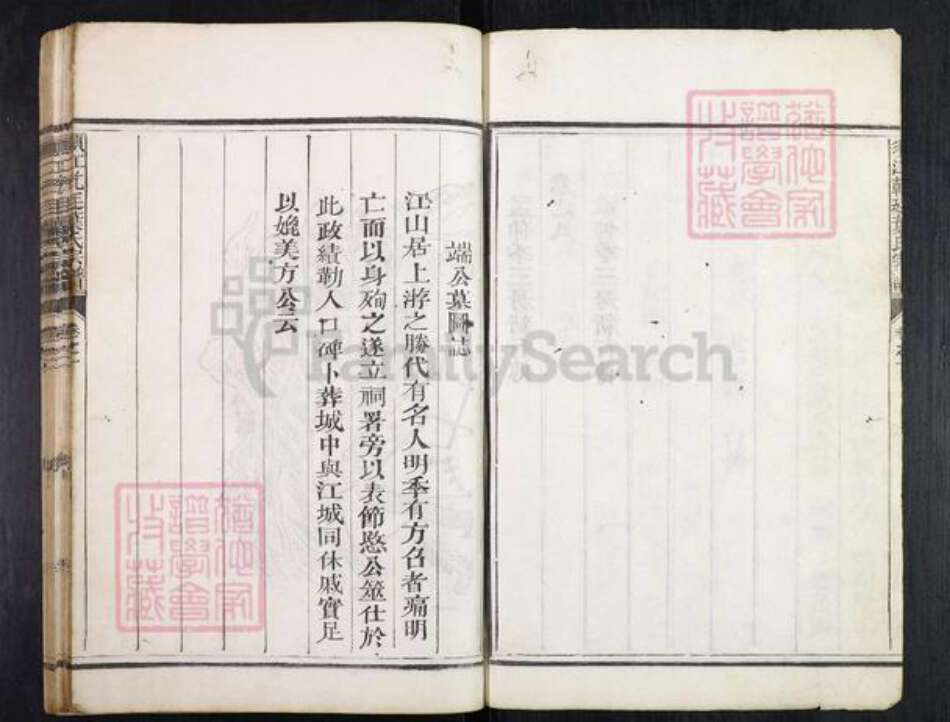 端公墓圖誌
江山居上游之勝代有名人明季有方召者痛明
亡而以身殉之遂立祠署旁以表節愍公筮仕於
此政績勒人口碑卜葬城中與江城同休戚實足
以媲美方公云
FamilySearch
譜學會
收藏
譜學會
收藏